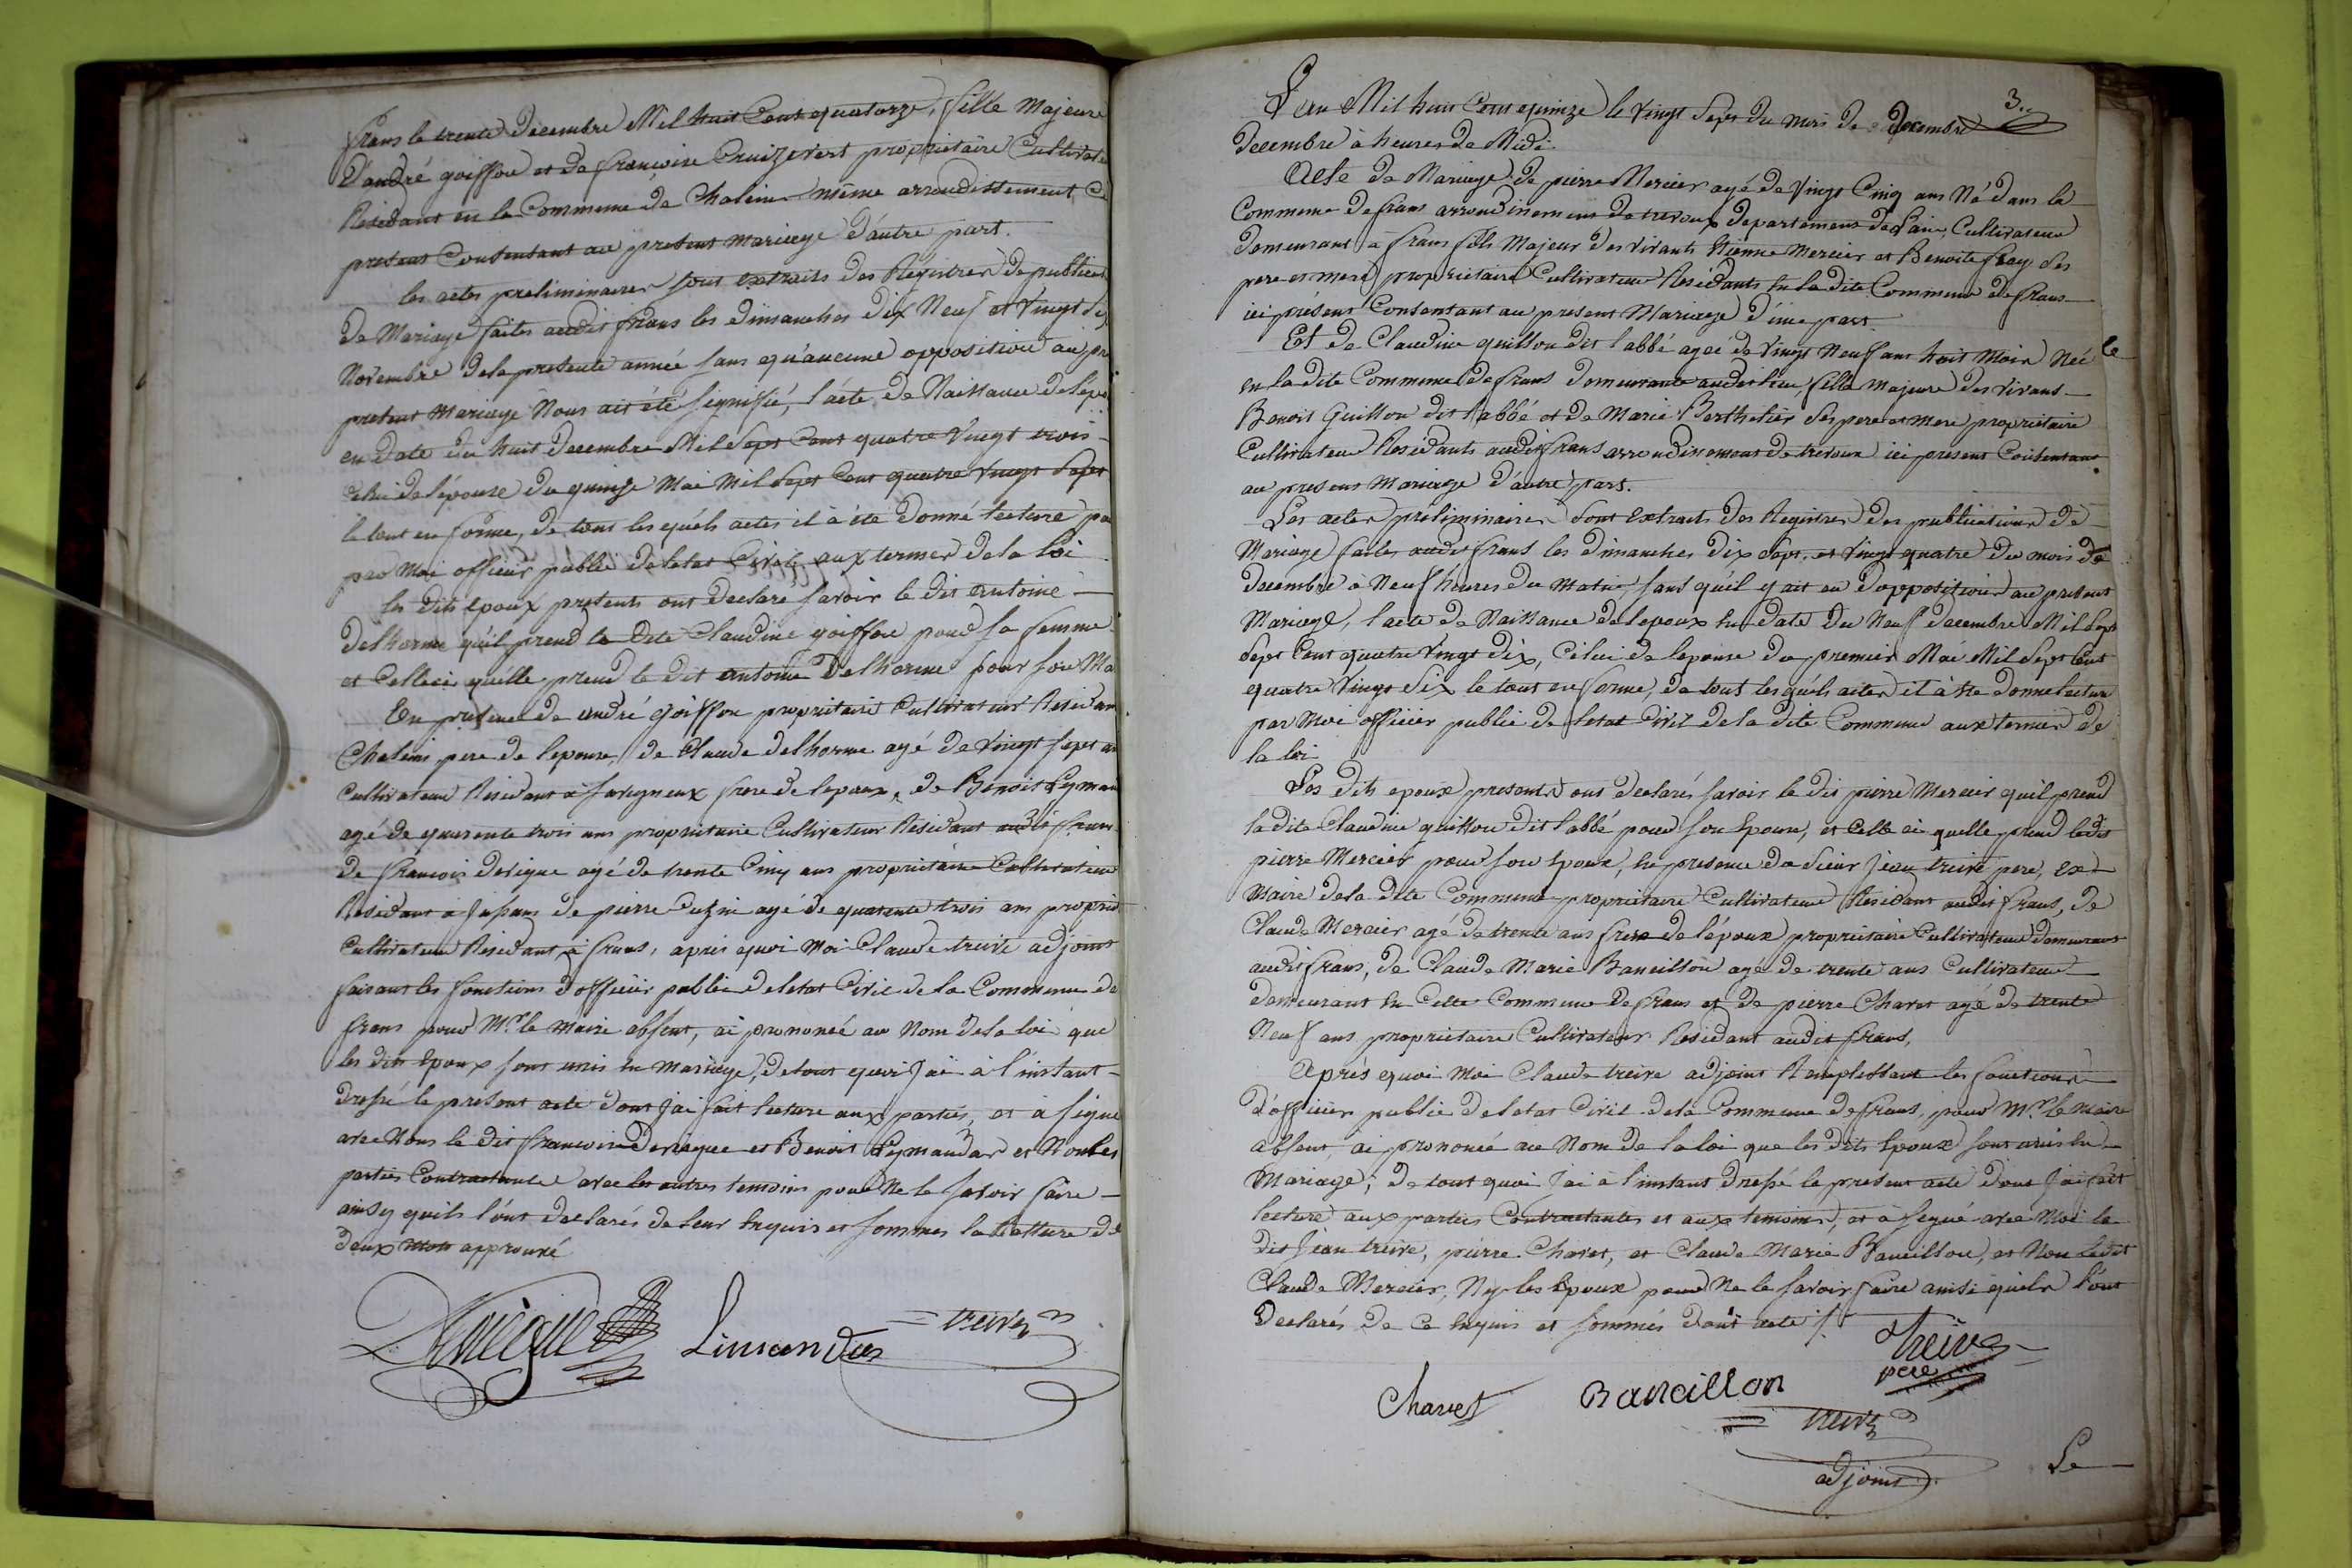 frans le trente decembre Mil huit Cent quatorze, fille Majeure
D'andré goiffon et de francoise Cruizevert propriétaire Cultivate
Résidant en la Commune de Chaleins même arrondissement, Ce
présent Consentant au présent mariage d'autre part.
les actes preliminaires sont extraits des Régistres de publicat
de Mariage faites audit frans les dimanches dix Neuf et Vingt Si
Novembre de la présente année sans qu'aucune opposition au pr
présent Mariage Nous ait été signifié, l'acte de Naissance de l'epo
en date du huit Decembre Mil Sept Cent quatre Vingt trois
Celui de l'épouse du quinze Mai Mil Sept Cent quatre Vingt Sept
le tout en forme, de tous lesquels actes il a été donné lecture pa
par Moi officier public de letat Civil aux termes de la loi
les dits Epoux présents ont declaré savoir le dit antoine
Delhorme qu'il prend la dite Claudine goiffon pour sa femme
et Celleci qu'elle prend le dit antoine Delhorme pour son Ma
En présence de andré goiffon propriétaire Cultivateur Résidan
Chaleins pere de lepouse, de Claude delhorme agé de Vingt sept an
Cultivateur Résidant à savigneux frere de lepoux, de Benoit Lyman
agé de quarente trois ans propriétaire Cultivateur Résidant audit frans
de francois derigue agé de trente Cinq ans propriétaire Cultivateur
Résidant à Jassans de pierre Cuzin agé de quarente trois ans propriét
Cultivateur Résidant à frans, apres quoi Moi Claude treive adjoint
faisant les fonctions d'officier public de letat Civil de la Commune de
frans pour Mr. le Maire absent, ai prononcé au Nom de la loi que
les dits Epoux sont unis en Mariage, de tout quoi J'ai à l'instant
dressé le présent acte dont J'ai fait lecture aux parties, et à signé
avec Nous le dit francois Derigue et Benoit Lymandas et Non les
parties Contractante avec les autres temoins pour Ne le savoir faire
ainsy quils l'ont declarés de leur Enquis et sommés la Rature de
deux mots approuvé
Derigue Limandas treive
3.
L'an Mil huit Cent quinze le Vingt Sept du mois de decembre
decembre à heures de Midi
Acte de Mariage de pierre Mercier agé de Vingt Cinq ans Né dans la
Commune de frans arrondissement de trevoux departement de l'ain, Cultivateur
demeurant à frans fils Majeur des vivants Etienne Mercier et Benoite fray Ses
pere et mere propriétaire Cultivateur Résidants En la dite Commune de frans
ici présent Consentant au présent Mariage d'une part.
Et de Claudine guillon dit labbé agée de Vingt Neuf ans huit Mois Née le
en la dite Commune de frans demeurante audit lieu, fille majeure des vivans
Benoit Guillon dit labbé et de Marie Berthelier Ses pere et mere propriétaire
Cultivateur Résidants audit frans arrondissement de trevoux ici présent Consentant
au présent Mariage d'autre part.
Les actes préliminaires sont extraits des Registres des publications de
Mariage faites audit frans les dimanches dix Sept et Vingt quatre du mois de
decembre à Neuf heures du Matin sans qu'il y ait eu d'opposition au présent
Mariage, l'acte de Naissance de lepoux En date du Neuf decembre Mil Sept
Sept Cent quatre Vingt dix, Celui de lepouse du premier Mai Mil Sept Cent
quatre Vingt Six le tout en forme, de tout lesquels actes il à été donné lecture
par Moi officier public de letat Civil de la dite Commune aux termes de
la loi
Les dits epoux présents ont declarés savoir le dit pierre Mercier qu'il prend
la dite Claudine guillon dit labbé pour son Epouse, et Celle ci quelle prend ledit
pierre Mercier pour son Epoux, En présence de Sieur Jean treive pere, ex
Maire de la dite Commune propriétaire Cultivateur Résidant audit frans, de
Claude Mercier agé de trente ans frere de l'époux propriétaire Cultivateur demeurant
audit frans, de Claude Marie Baneillon agé de trente ans Cultivateur
demeurant En Cette Commune de frans et de pierre Charet agé de trente
Neuf ans propriétaire Cultivateur Résidant audit frans,
Après quoi Moi Claude treive adjoint Remplissant les fonctions
d'officier public de letat Civil de la Commune de frans, pour Mr. le Maire
absent, ai prononcé au Nom de la loi que les dits Epoux sont unis En
Mariage, de tout quoi J'ai à l'instant dressé le présent acte dont J'ai fait
lecture aux parties Contractantes et aux temoins, et à signé avec Moi le
dit Jean treive, pierre Charet, et Claude Marie Baneillon, et Non ledit
Claude Mercier, Ny les Epoux pour Ne le savoir faire ainsi quils l'ont
declarés de Ce Enquis et sommés dont acte
Treive
pere
Charvet Baneillon
treive
adjoint
Le